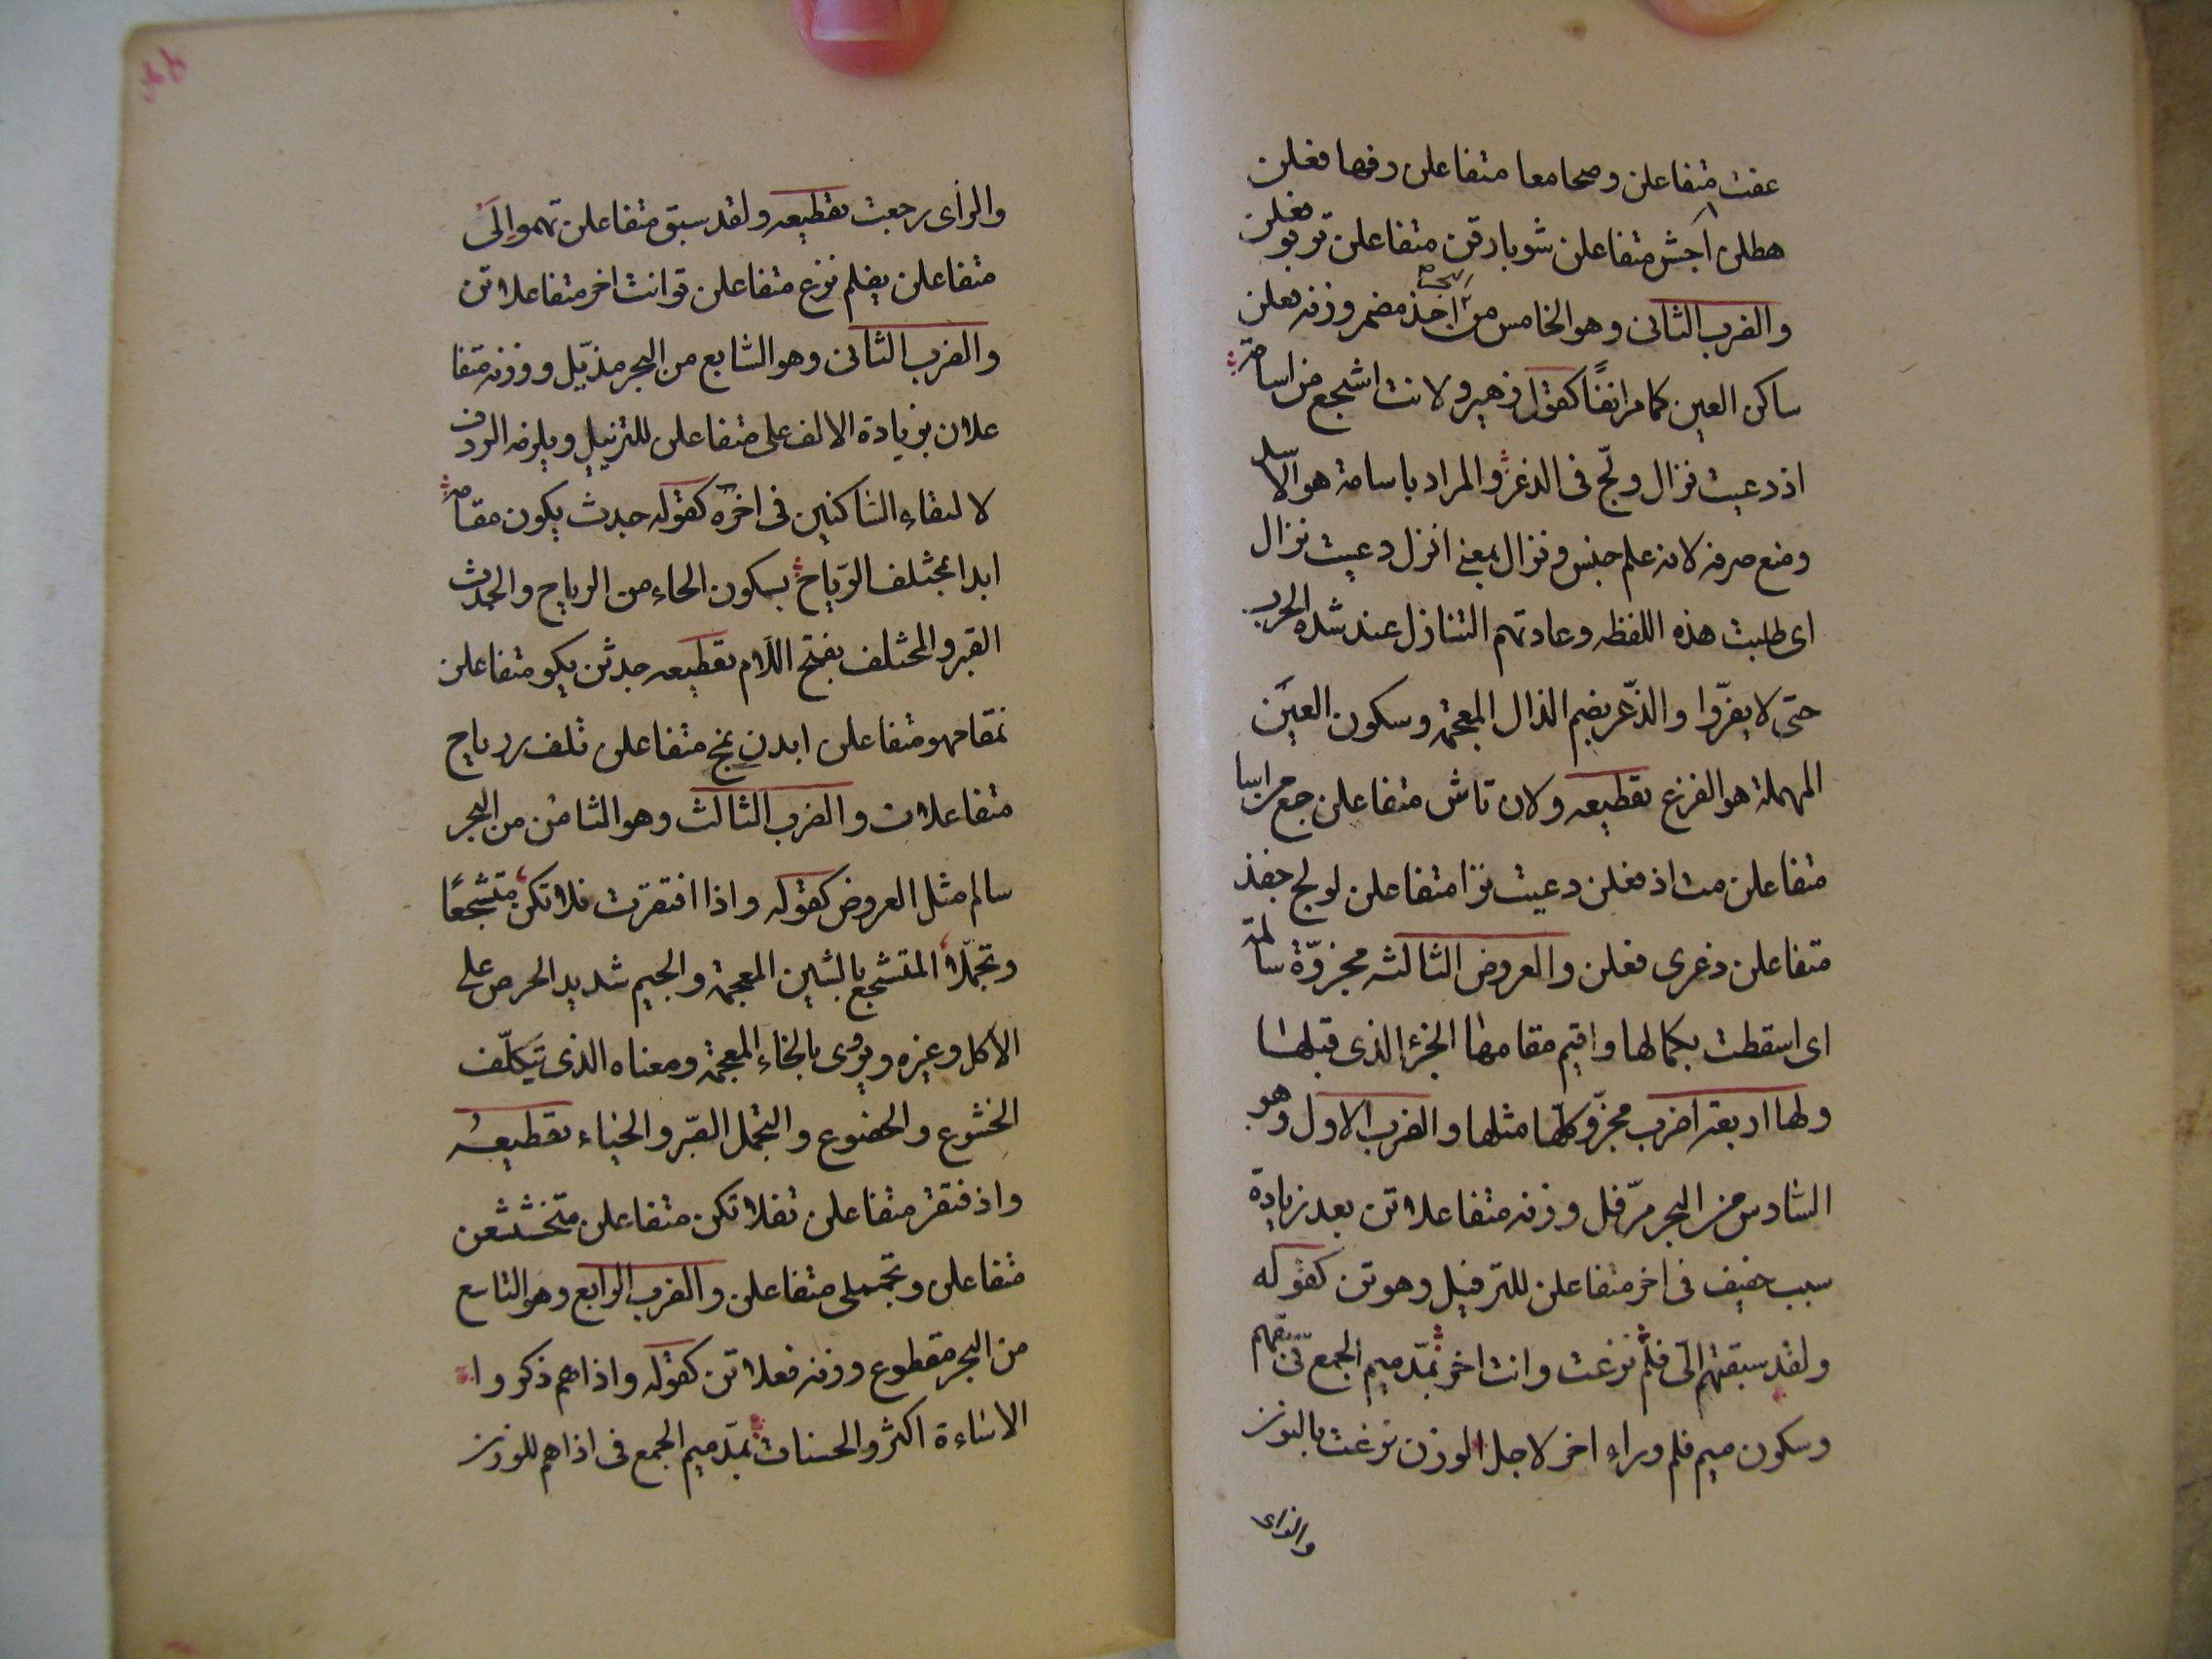 عفت متفاعلن ومحامعا متفاعلن رفها فعلن
هطلن اجش متفاعلن شو بارقن متفاعلن تربو فعلن
والضرب الثانى وهو الخامس من البحر احذ مضمر وزنه فعلن
ساكن العين كما مر انفًا كقول زهير ولانت اشجع من اسامة
اذ دعيت نزال ولجّ فى الذعر والمراد باسامة هو الاسد
ومنع صرفه لانه علم جنس ونزال بمعنى انزل دعيت نزال
اى طلبت هذه اللفظه وعادتهم التنازل عند شدة الحرب
حتى لا يفرّوا والذّعر بضم الذال المعجمة وسكون العين
المهملة هو الفزع تقطيعه ولان تاش متفاعلن جع من اسا
متفاعلن مت اذ فعلن دعيت نزا متفاعلن لولج جفذ
متفاعلن ذعرى فعلن والعروض الثالثه مجزوّة سالمة
اى اسقطت بكمالها واقيم مقامها الجزء الذى قبلها
ولها اربعة اضرب مجزّو كلّها مثلها والضرب الاول وهو
السادس من البحر مرّفل وزنه متفاعلاتن بعد زيادة
سبب خفيف فى اخر متفاعلن للترفيل وهو تن كقوله
ولقد سبقتهم الىّ فلم نزعت وانت اخر بمدّ ميم الجمع فى سبقتهم
وسكون ميم فلم وراء اخر لاجل الوزن نزعت بالنون
والزاى
والزأى رجعت تقطيعه ولقد سبق متفاعلن تهمو الَى
متفاعلن يفلم نزع متفاعلن توانت اخر متفاعلاتن
والضرب الثانى وهو السّابع من البحر مذيّل ووزنه متفا
علان بزيادة الالف على متفاعلن للتزييل ويلزمه الردف
لالتقاء السّاكنين فى اخره كقوله جدث يكون مقامه
ابدا بمختلف الرّياح بسكون الحاء من الرياح والجدث
القبر والمختلف بفتح اللّام تقطيعه جدثن يكو متفاعلن
نمقامهو متفاعلن ابدن بمخ متفاعلن تلف ررياح
متفاعلان والضرب الثالث وهو الثامن من البحر
سالم مثل العروض كقوله واذا افتقرت فلا تكن متشجعًا
وتجمّل المتشجع بالشين المعجمة والجيم شديد الحرص على
الاكل وغيره ويروى بالخاء المعجمة ومعناه الذى تيكلّف
الخشوع والخضوع والتجمل الصّبر والحياء تقطيعه
واذفتقر متفاعلن تفلا تكن متفاعلن متخششعن
متفاعلن وتجمملى متفاعلن والضرب الرابع وهو التاسع
من البحر مقطوع ووزنه فعلاتن كقوله واذا هم ذكروا
الاساءة اكثر والحسنات بمدّ ميم الجمع فى اذا هم للوزن